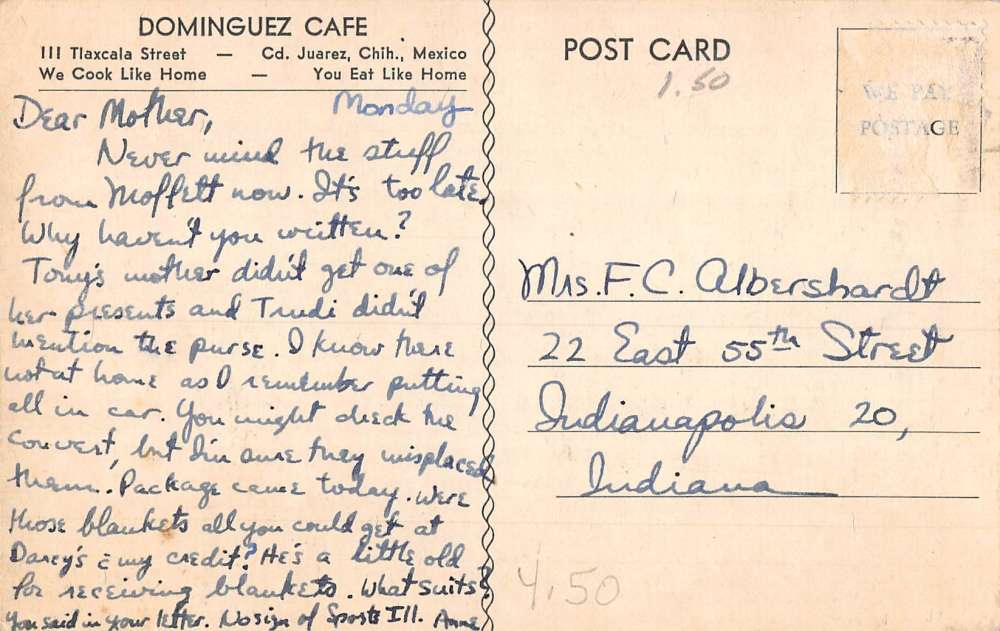 DOMINGUEZ CAFE
111 Tlaxcala Street — Cd. Juarez, Chih., Mexico
We Cook Like Home — You Eat Like Home
Monday
Dear Mother,
Never mind the stuff
from Moffett now. It's too late.
Why haven't you written?
Tony's mother didn't get one of
her presents and Trudi didn't
mention the purse. I know there
not at home as I remember putting
all in car. You might check the
convert, but I'm sure they misplaced
them. Package came today. Were
those blankets all you could get at
Darcy's c̄ my credit? He's a little old
for receiving blankets. What suits?
You said in your letter. No sign of Sports Ill. Anne
POST CARD
1.50
WE PAY
POSTAGE
Mrs. F. C. Albershardt
22 East 55th Street
Indianapolis 20,
Indiana
4.50